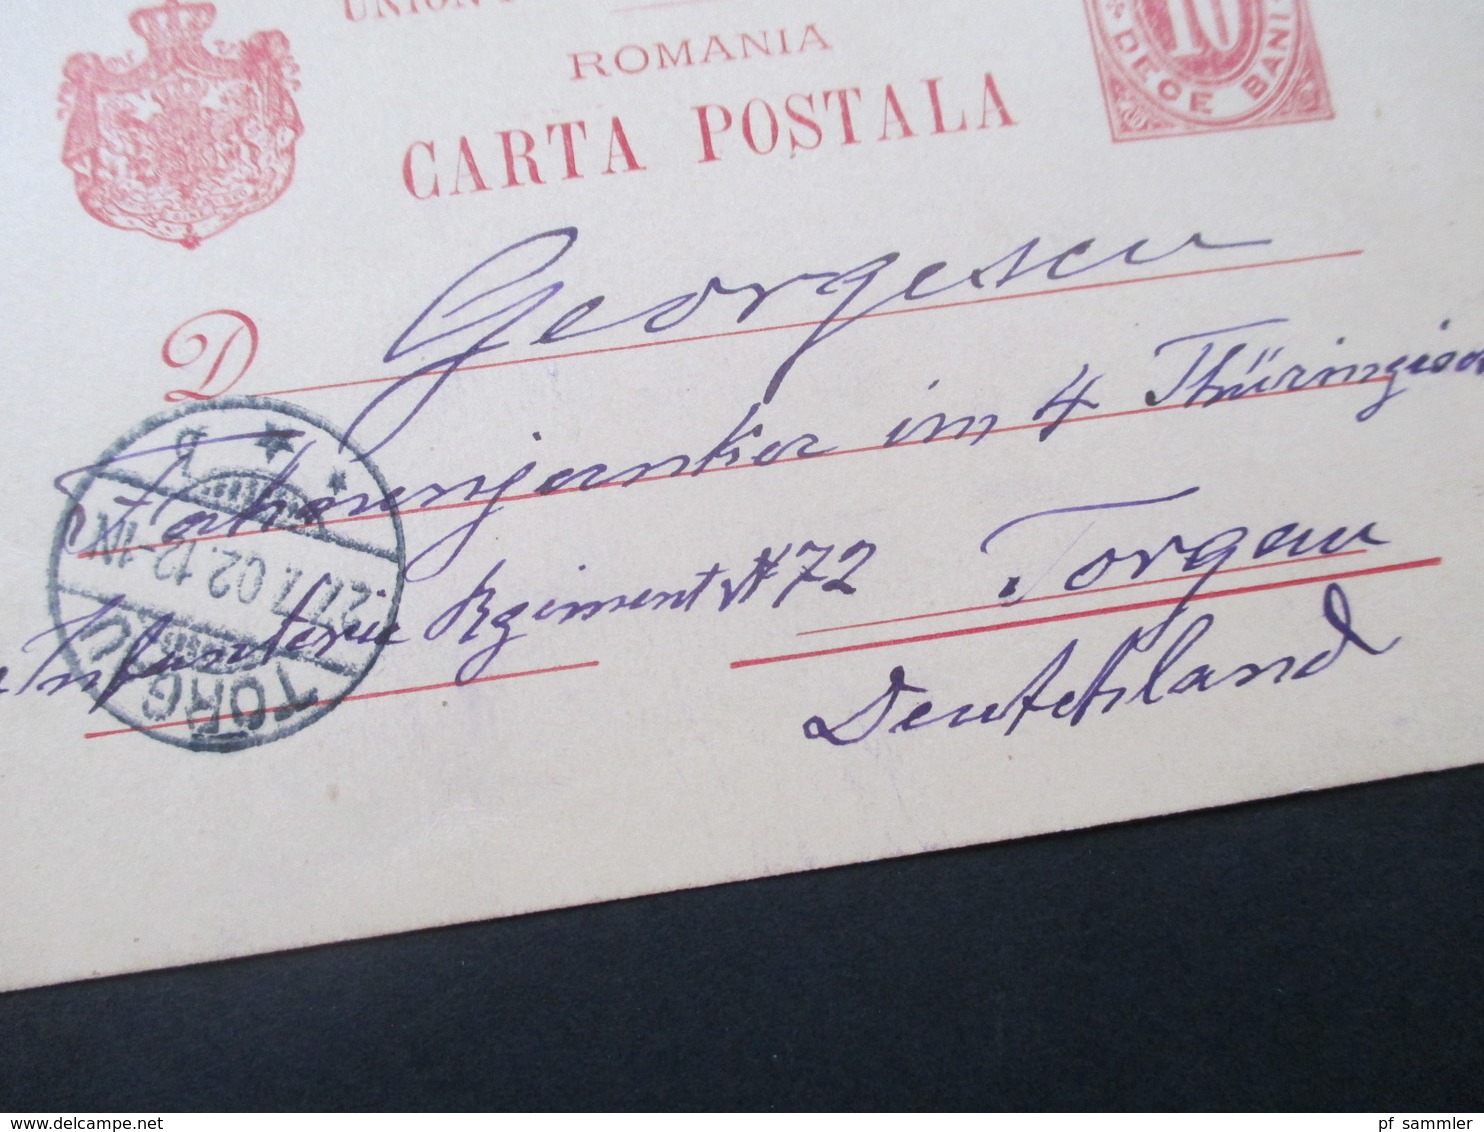 UNION
ROMANIA
10
DECE BANI
CARTA POSTALA
D Georgescu
Fahnenjunker im 4 Thüringisch
Infanterie Regiment N 72 Torgau
Deutschland
TORGAU
27.7.02.12-1N
pf_sammler